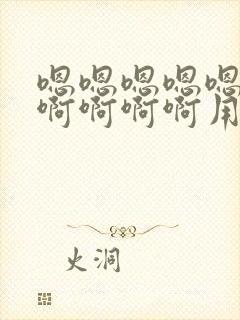 嗯嗯嗯嗯嗯
啊啊啊啊用
火洞